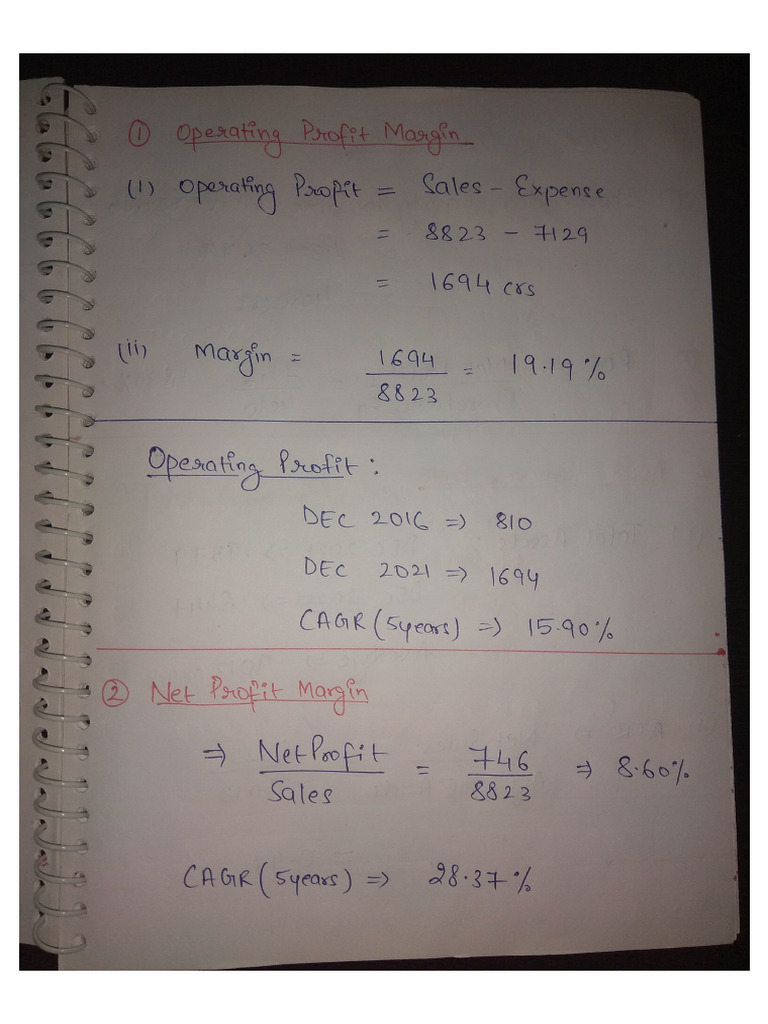 ① Operating Profit Margin
(i) Operating Profit = Sales - Expense
= 8823 - 7129
= 1694 crs
(ii) Margin = 1694 / 8823 = 19.19%
Operating Profit :
DEC 2016 => 810
DEC 2021 => 1694
CAGR (5years) => 15.90%
② Net Profit Margin
=> Net Profit / Sales = 746 / 8823 => 8.60%
CAGR (5years) => 28.37%